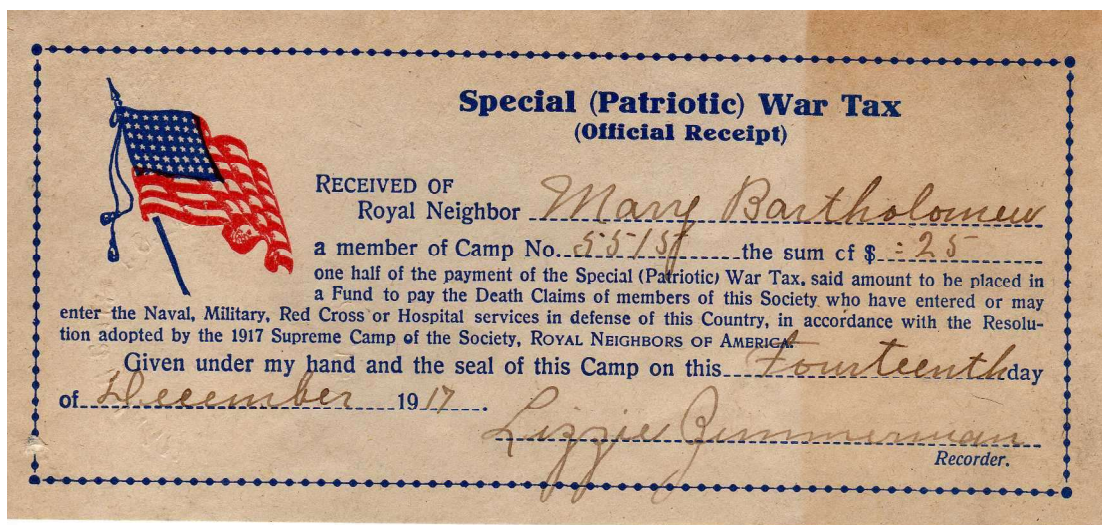 Special (Patriotic) War Tax
(Official Receipt)
RECEIVED OF
Royal Neighbor Mary Bartholomew
a member of Camp No. 5515 the sum cf $ .25
one half of the payment of the Special (Patriotic) War Tax, said amount to be placed in
a Fund to pay the Death Claims of members of this Society who have entered or may
enter the Naval, Military, Red Cross or Hospital services in defense of this Country, in accordance with the Resolu-
tion adopted by the 1917 Supreme Camp of the Society, ROYAL NEIGHBORS OF AMERICA.
Given under my hand and the seal of this Camp on this Fourteenth day
of December 1917.
Lizzie Zimmerman
Recorder.